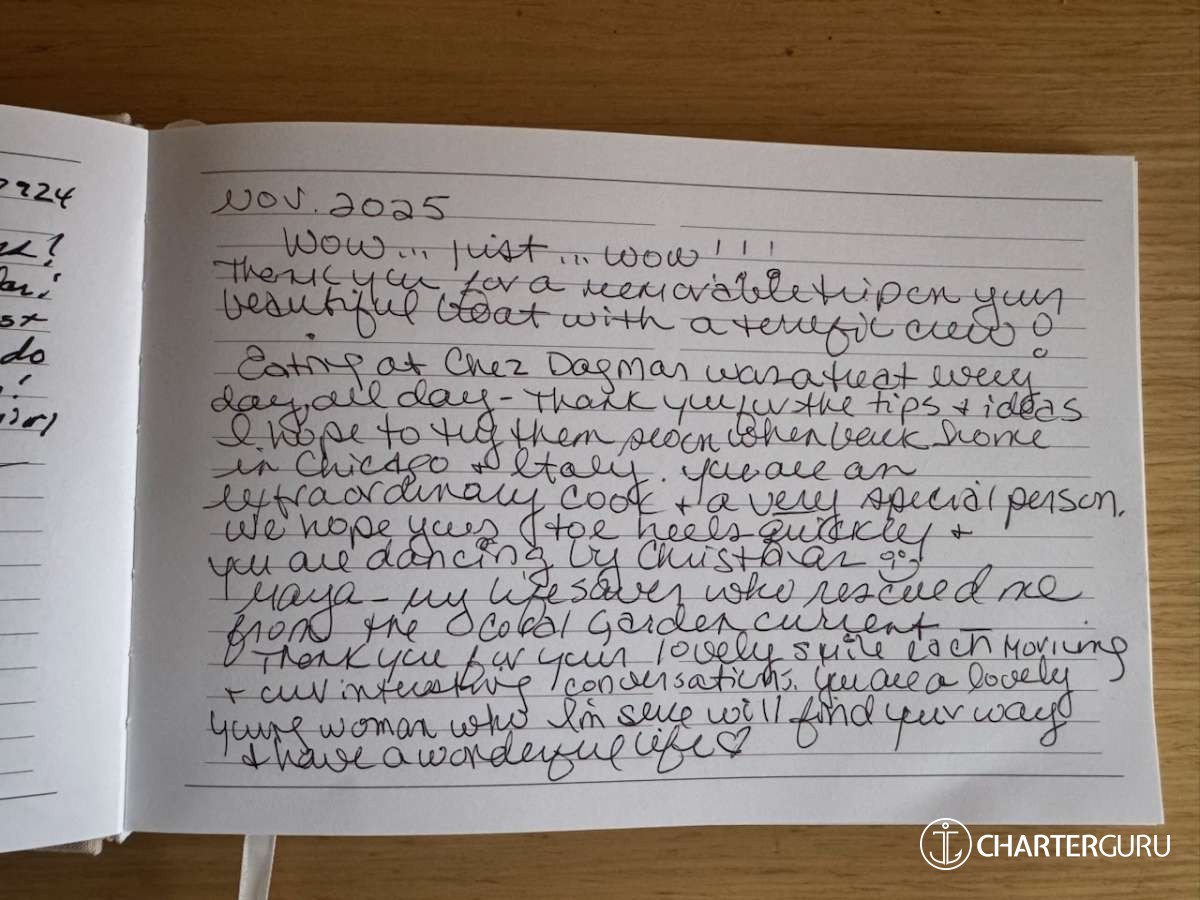 2924
do
Nov. 2025
Wow... just... wow!!!
Thank you for a memorable trip on your
beautiful boat with a terrefic crew!
Eating at Chez Dagmar was a treat every
day, all day - Thank you for the tips + ideas
I hope to try them soon when back home
in Chicago + Italy. You are an
extraordinary cook + a very special person.
We hope your toe heels quickly +
you are dancing by
Maya - my lifesaver who rescued me
from the Coral Garden current -
Thank you for your lovely smile each morning
+ our interesting conversations. You are a lovely
young woman who I'm sure will find your way
+ have a wonderful life ♡
CHARTERGURU